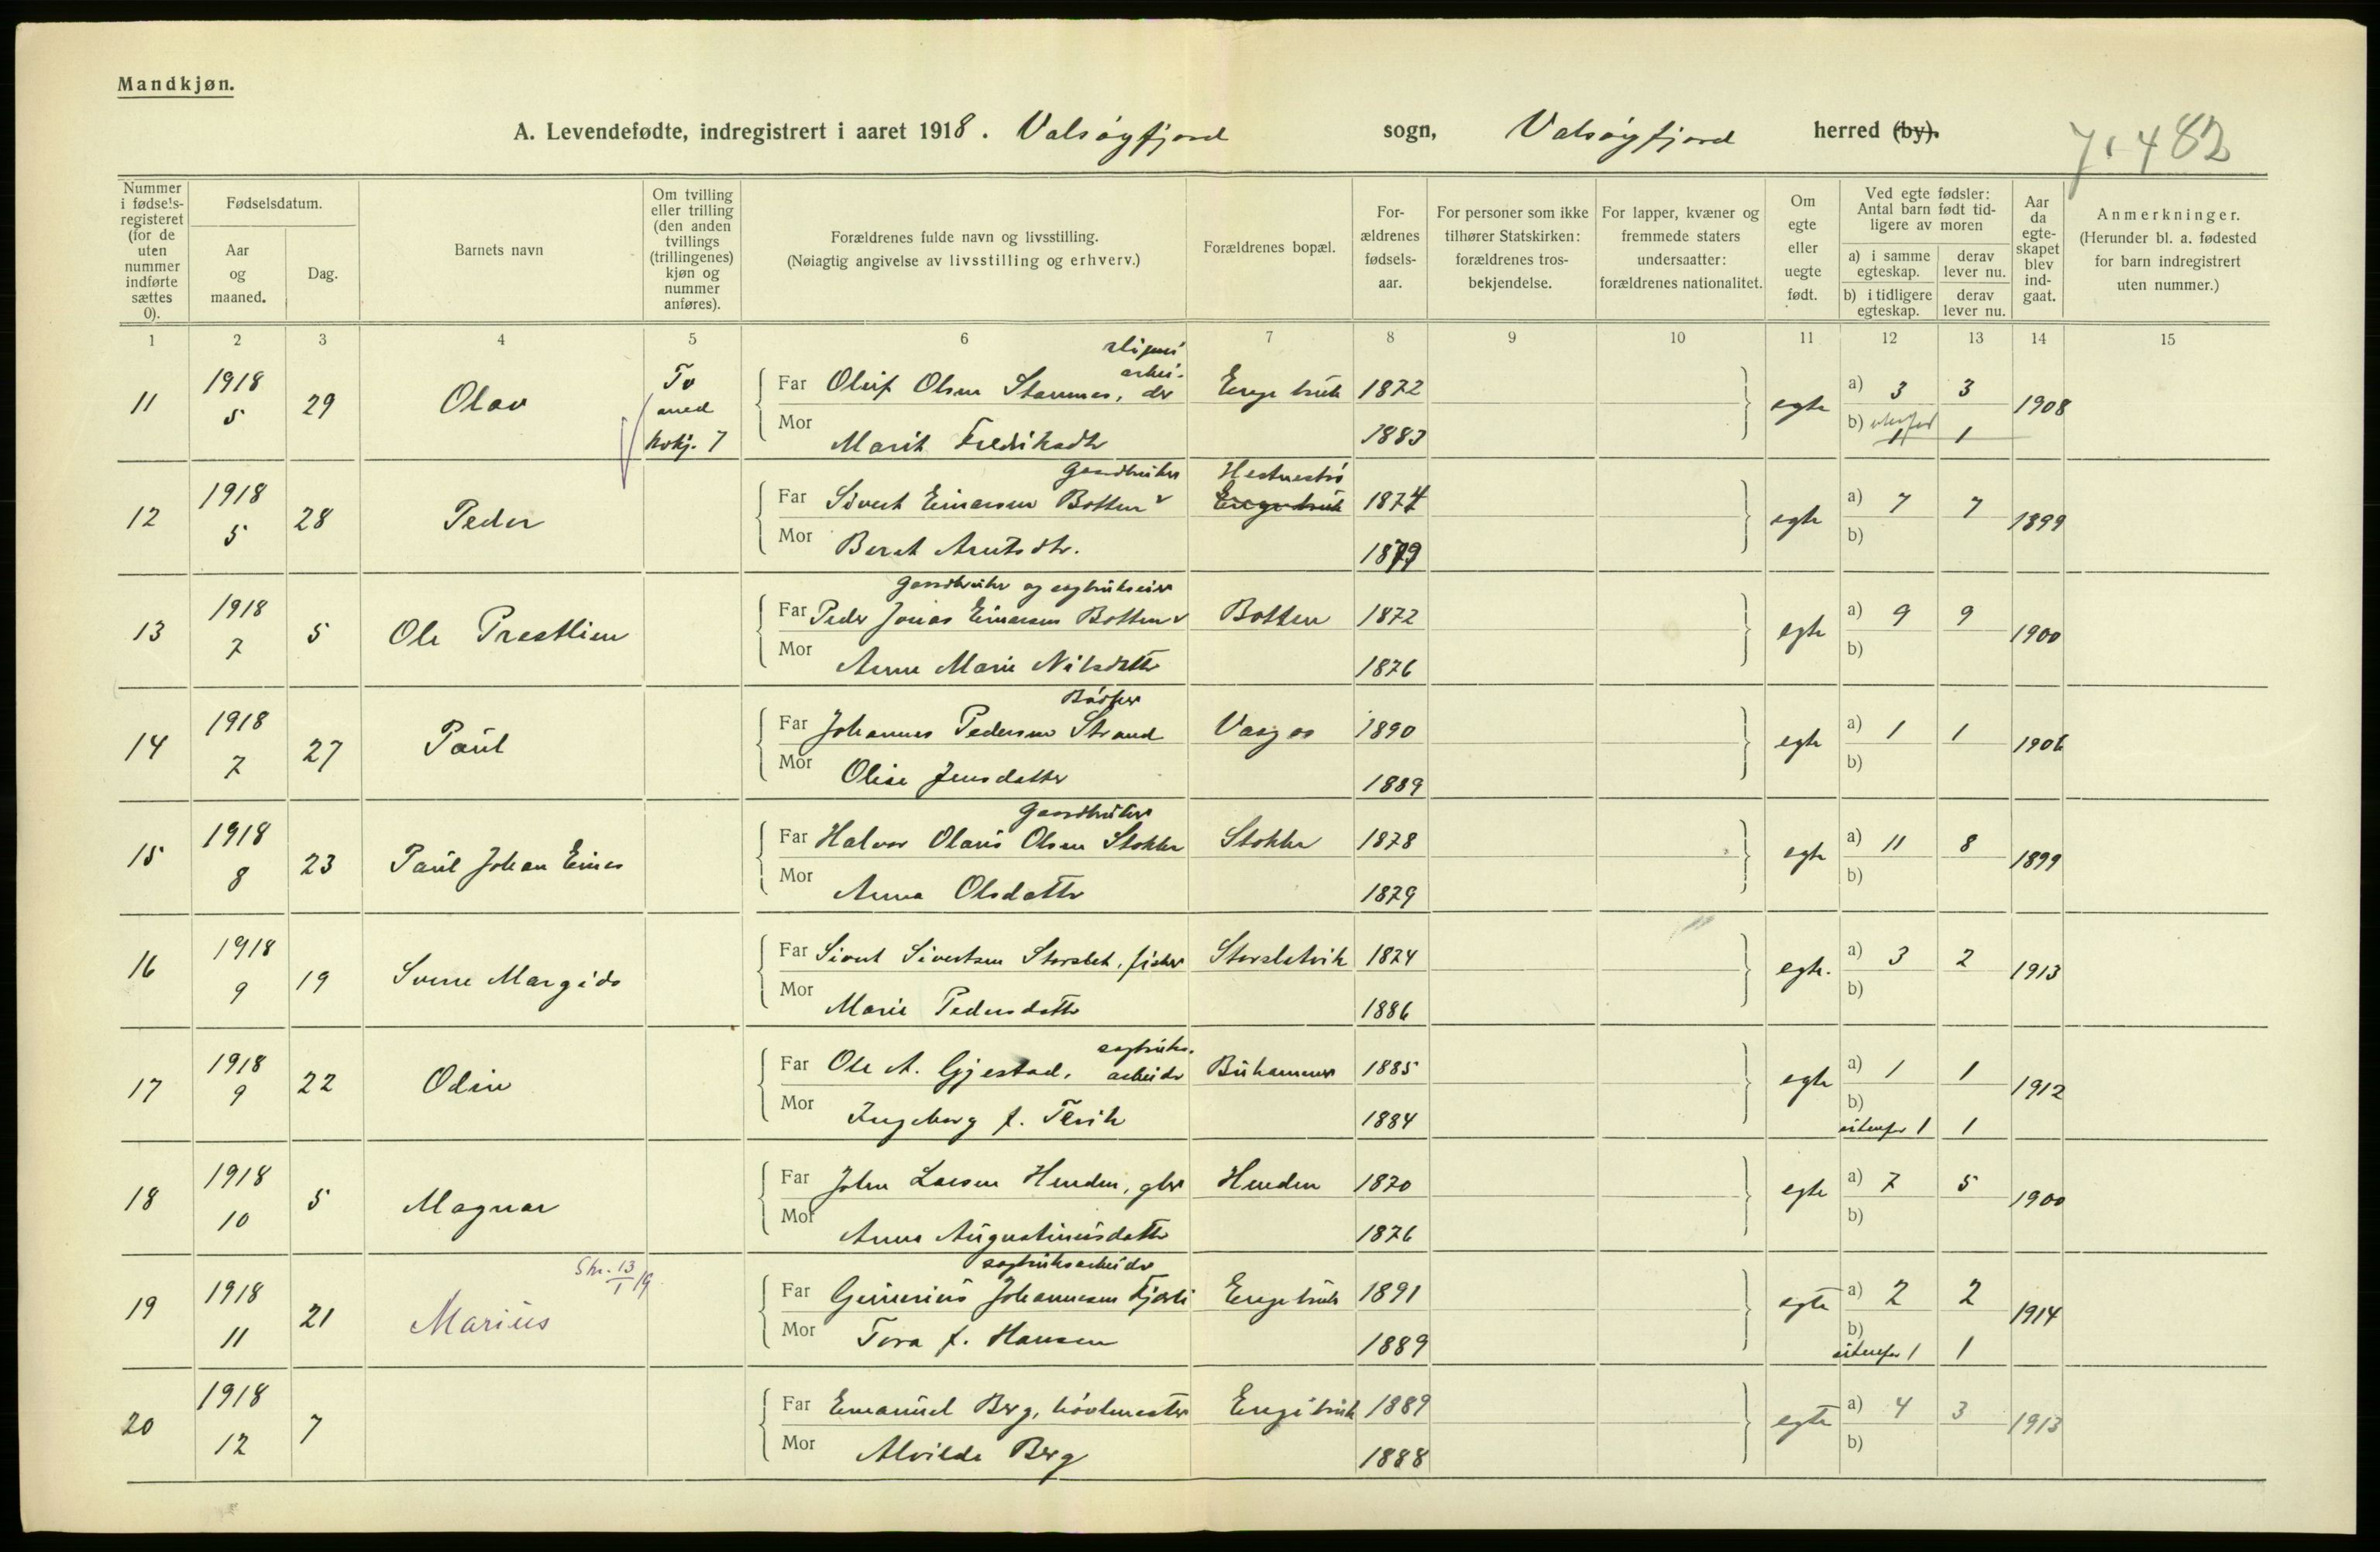 Mandkjøn.
A. Levendefødte, indregistrert i aaret 1918. Valsøyfjord sogn, Valsøyfjord herred (by).
71482
Nummer i fødsels-registeret (for de uten nummer indførte sættes 0).
Fødselsdatum.
Aar og maaned.
Dag.
Barnets navn
Om tvilling eller trilling (den anden tvillings (trillingenes) kjøn og nummer anføres).
Forældrenes fulde navn og livsstilling.
(Nøiagtig angivelse av livsstilling og erhverv.)
Forældrenes bopæl.
For-ældrenes fødsels-aar.
For personer som ikke tilhører Statskirken: forældrenes tros-bekjendelse.
For lapper, kvæner og fremmede staters undersaatter: forældrenes nationalitet.
Om egte eller uegte født.
Ved egte fødsler: Antal barn født tid-ligere av moren
a) i samme egteskap.
derav lever nu.
b) i tidligere egteskap.
derav lever nu.
Aar da egte-skapet blev ind-gaat.
Anmerkninger.
(Herunder bl. a. fødested for barn indregistrert uten nummer.)
1 2 3 4 5 6 7 8 9 10 11 12 13 14 15
11 1918 5 29 Olav Tv med kvkj. 7
Far Oluf Olsen Stamnes, arbei-der Engebruk 1872 egte a) 3 3 1908
Mor Marit Fredriksdtr 1883 b) utenfor 1 1
12 1918 5 28 Peder
Gaardbruker Hestnesbrø
Far Sivert Einarsen Botten Engebruk 1874 egte a) 7 7 1899
Mor Beret Arntsdtr. 1879 b)
13 1918 7 5 Ole Prestlien
Gaardbruker og sagbrukseier
Far Peder Jonas Einarsen Botten Botten 1872 egte a) 9 9 1900
Mor Anne Marie Nilsdattr 1876 b)
14 1918 7 27 Paul
Bødker
Far Johannes Pedersen Strand Vaagos 1890 egte a) 1 1 1906
Mor Oline Jensdatter 1889 b)
15 1918 8 23 Paul Johan Einar
Gaardbruker
Far Halvor Olaus Olsen Stokke Stokke 1878 egte a) 11 8 1899
Mor Anna Olsdattr 1879 b)
16 1918 9 19 Sverre Margido
Far Sivert Sivertsen Storslet, fisker Storsletvik 1874 egte. a) 3 2 1913
Mor Marie Pedersdattr 1886 b)
17 1918 9 22 Odin
Far Ole A. Gjestad, sagbruks-arbeider Buhammer 1885 egte a) 1 1 1912
Mor Ingeborg f. Tesik 1884 b) utenfor 1 1
18 1918 10 5 Magnar
Far John Larsen Henden, gbr Henden 1870 egte a) 7 5 1900
Mor Anna Augustinusdattr 1876 b)
19 1918 11 21 Marius Skr. 13/1 19
sagbruksarbeider
Far Johannesen Fjærli Engebruk 1891 egte a) 2 2 1914
Mor Tora f. Hansen 1889 b) utenfor 1 1
20 1918 12 7
Far Emanuel Berg, høvlmester Engebruk 1889 egte a) 4 3 1913
Mor Alvilde Berg 1888 b)